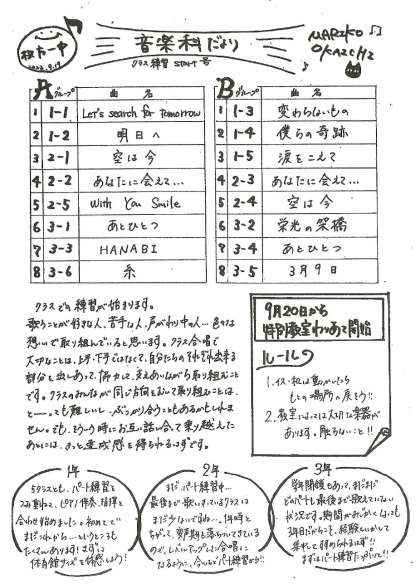 枚方一中
音楽科だより
クラス練習 START号
MARIKO
OKAZCHI
Aグループ
曲名
1 1-1 Let's search for Tomorrow
2 1-2 明日へ
3 2-1 空は今
4 2-2 あなたに会えて…
5 2-5 With You Smile
6 3-1 あとひとつ
7 3-3 HANABI
8 3-6 糸
Bグループ
曲名
1 1-3 変わらないもの
2 1-4 僕らの奇跡
3 1-5 涙をこえて
4 2-3 あなたに会えて…
5 2-4 空は今
6 3-2 栄光の架橋
7 3-4 あとひとつ
8 3-5 3月9日
クラスでの練習が始まります。
歌うことが好きな人、苦手な人、声がわり中の人…色々な
想いで取り組んでいると思います。クラス合唱で
大切なことは、上手・下手ではなくて、自分たちのそれぞれ出来る
部分を出しあって、協力して、支えあいながら取り組むこと
です。クラスのみんなが同じ方向をむいて取り組むことは、
と――っても難しいし、ぶつかり合うこともあるかもしれま
せん。でも、そういう時にお互い話し合って乗り越えた
あとには、きっと達成感を得られるはずです。
9月20日から
特別教室わりあて開始
ルール
1. イス・机は動かしたら
もとの場所へ戻そう!!
2. 教室によっては大切な楽器が
あります。触らないこと!!
1年
5クラスとも、パート練習を
つみ重ねて、ピアノ伴奏・指揮と
合わせ始めました。初めてで
まだこれから…というところも
たくさんあります!まずは
体育館サイズで体感しよう!
2年
まだパート練習中…
最後まで歌いきっているクラスは
まだ少ないですね…。1年時と
ちがって、変声期も落ちついてきている
ので、レベルアップした合唱に
なるように、今はパート練習が命!!
3年
学年閉鎖もあって、まだまだ
どのパートも最後まで歌えていない
状況です。期間がみじかくなっても
3年目だからこそ、経験をいかして
集中して深められるはず!!
まずはパート練習だっ!!